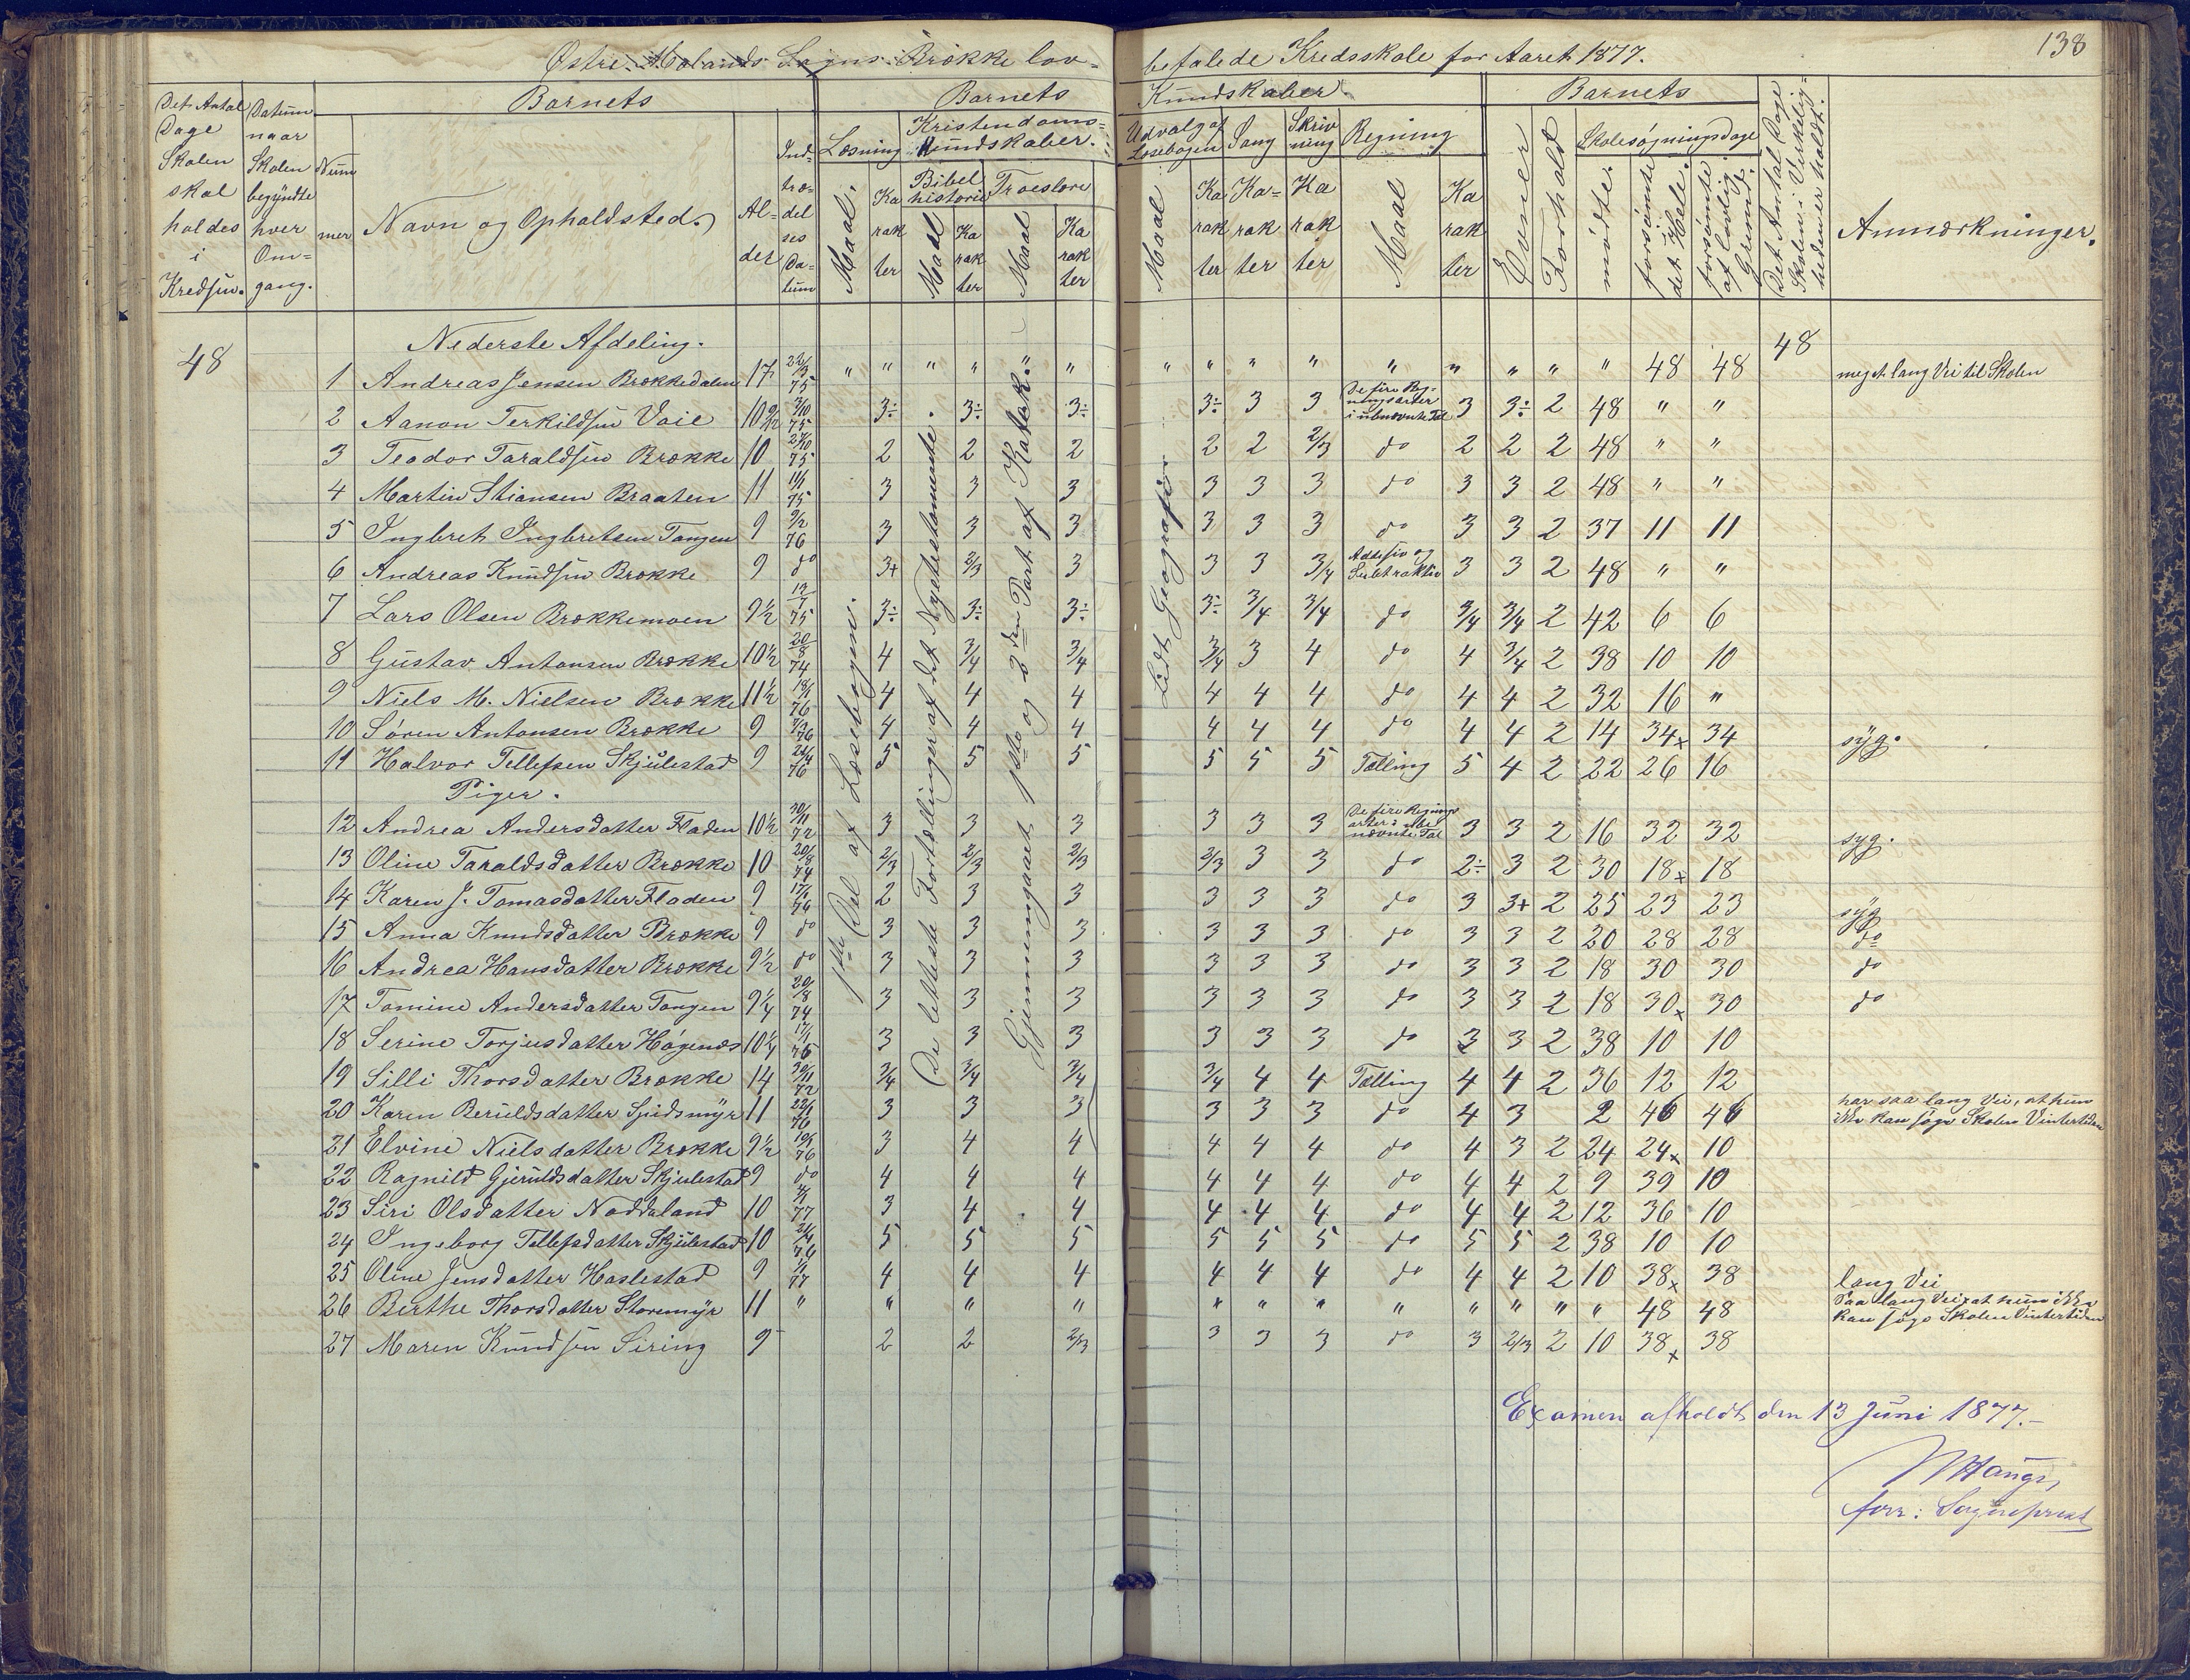 138
Østre Molands Sogns Brække lov-
befalede Kredsskole for Aaret 1877.
Det Antal Dage Skolen skal holdes i Kredsen.
Datum naar Skolen begyndte hver Om-gang.
Barnets
Nummer
Navn og Opholdsted.
Alder
Indtrædelses Datum
Barnets
Læsning
Maal.
Karakter
Kristendoms-Kundskaber.
Bibelhistorie
Maal
Karakter
Troeslære
Maal
Karakter
Kundskaber.
Udvalg af Læsebogen
Maal
Karakter
Sang
Karakter
Skrivning
Karakter
Regning
Maal
Karakter
Barnets
Evner
Forhold
Skolesøgningsdage
mødte.
forsømte det Hele.
forsømte af lovlig Grund.
Det Antal Dage Skolen i Virkeligheden er holdt.
Anmærkninger.
1ste Del af Læsebogen.
De letteste Fortællinger af det Nytestamente.
Gjennemgaaet 1ste og 2den Part af Katek.
Lidt Geografi
48 Nederste Afdeling. 48
1 Andreas Jensen Brækkedalen 17 22/3 75 " " " " " " " " " " " " " " 48 48 meget lang Vei til Skolen
2 Aanon Terkildsen Vaie 10 1/2 3/10 75 3÷ 3÷ 3÷ 3÷ 3 3 De fire Regningsarter i ubenævnte Tal 3 3÷ 2 48 " "
3 Teodor Taraldsen Brække 10 2/10 75 2 2 2 2 2 2/3 do 2 2 2 48 " "
4 Martin Stiansen Braaten 11 11/1 75 3 3 3 3 3 3 do 3 3 2 48 " "
5 Ingbret Ingbretsen Tangen 9 9/2 76 3 3 3 3 3 3 do 3 3 2 37 11 11
6 Andreas Knudsen Brække 9 do 3+ 2/3 3 3 3 3/4 Addesion og Subtraktion 3 3 2 48 " "
7 Lars Olsen Brækkemoen 9 1/2 12/1 75 3÷ 3÷ 3÷ 3÷ 3/4 3/4 do 3/4 3/4 2 42 6 6
8 Gustav Antonsen Brække 10 1/2 20/8 74 4 3/4 3/4 3/4 3 4 do 4 3/4 2 38 10 10
9 Niels M. Nielsen Brække 11 1/2 18/1 76 4 4 4 4 4 4 do 4 4 2 32 16 "
10 Søren Antonsen Brække 9 7/3 76 4 4 4 4 4 4 do 4 4 2 14 34x 34 syg.
11 Halvor Tellefsen Skjulestad 9 24/4 76 5 5 5 5 5 5 Tælling 5 4 2 22 26 16
Piger.
12 Andrea Andersdatter Fladen 10 1/2 30/11 72 3 3 3 3 3 3 De fire Regningsarter i ubenævnte Tal 3 3 2 16 32 32 syg.
13 Oline Taraldsdatter Brække 10 20/8 74 2/3 2/3 2/3 2/3 3 3 do 2÷ 3 2 30 18x 18
14 Karen J. Tomasdatter Fladen 9 17/1 76 2 3 3 3 3 3 do 3 3+ 2 25 23 23 syg
15 Anna Knudsdatter Brække 9 do 3 3 3 3 3 3 do 3 3 2 20 28 28 do
16 Andrea Hansdatter Brække 9 1/2 do 3 3 3 3 3 3 do 3 3 2 18 30 30 do
17 Tomine Andersdatter Tangen 9 1/4 20/8 74 3 3 3 3 3 3 do 3 3 2 18 30x 30 do
18 Serine Torjusdatter Høgenæs 10 1/4 17/1 76 3 3 3 3 3 3 do 3 3 2 38 10 10
19 Silli Thorsdatter Brække 14 30/11 72 3/4 3/4 3/4 3/4 4 4 Tælling 4 4 2 36 12 12
20 Karen Beruldsdatter Spidsmyr 11 22/1 76 3 3 3 3 3 3 do 4 3 2 46 46 har saa lang Vei, at hun ikke kan søge Skolen Vintertiden
21 Elvine Nielsdatter Brække 9 1/2 19/1 76 3 4 4 4 4 4 do 4 3 2 24 24x 10
22 Ragnild Gjeruldsdatter Skjulestad 9 do 4 4 4 4 4 4 do 4 4 2 9 39 10
23 Siri Olsdatter Noddeland 10 4/1 77 3 4 4 4 4 4 do 4 4 2 12 36 10
24 Ingeborg Tellefsdatter Skjulestad 10 24/4 76 5 5 5 5 5 5 do 5 5 2 38 10 10
25 Oline Jensdatter Haslestad 9 1/1 77 4 4 4 4 4 4 do 4 4 2 10 38x 38 lang Vei
26 Birthe Thorsdatter Storemyr 11 " " " " " " " " " " " " 48 48 Saa lang Vei, at hun ikke kan søge Skolen Vintertiden
27 Maren Knudsen Siring 9 2 2 2/3 3 3 3 do 3 2/3 2 10 38x 38
Examen afholdt den 13 Juni 1877.
Hauge,
forr: Sogneprest